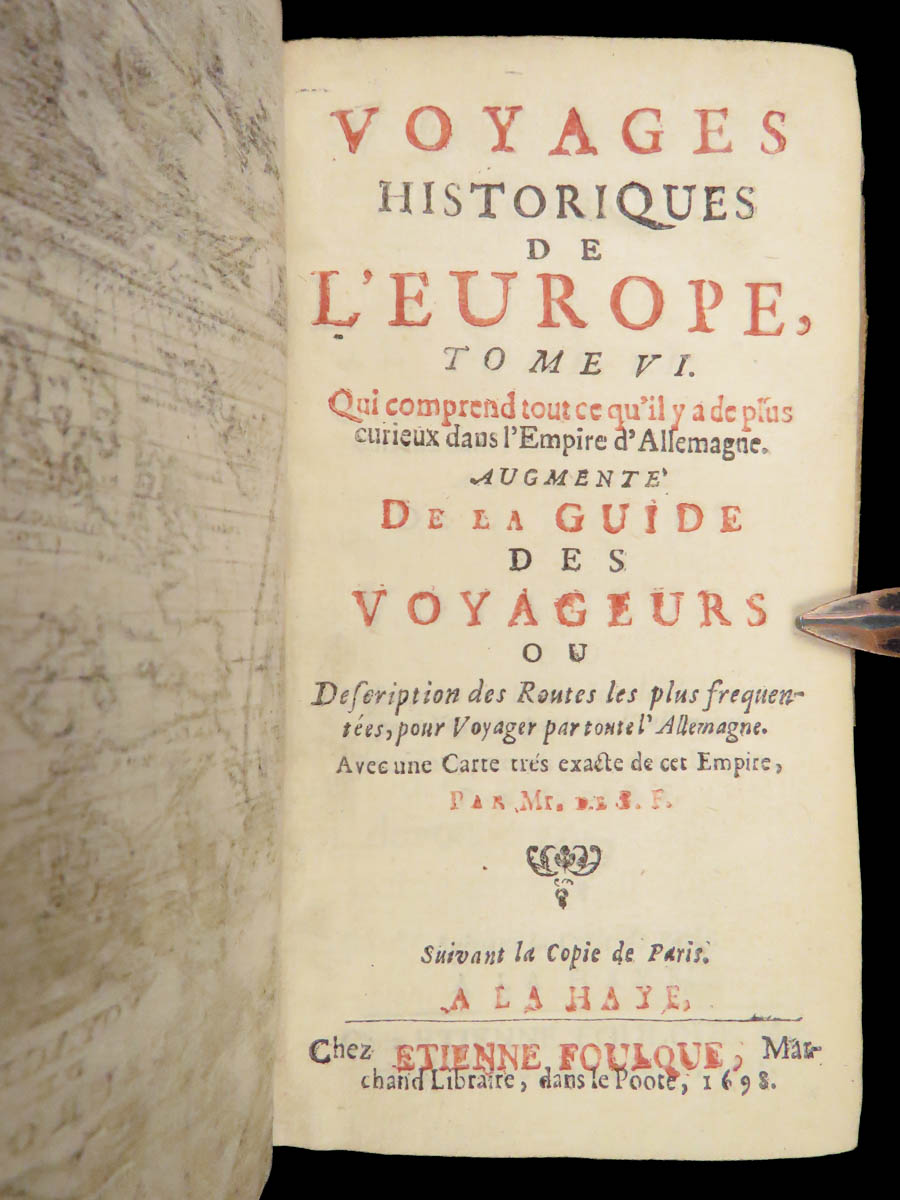 VOYAGES
HISTORIQUES
DE
L'EUROPE,
TOME VI.
Qui comprend tout ce qu'il y a de plus
curieux dans l'Empire d'Allemagne.
AUGMENTE'
DE LA GUIDE
DES
VOYAGEURS
OU
Description des Routes les plus frequen-
tées, pour Voyager par toute l'Allemagne.
Avec une Carte trés exacte de cet Empire,
PAR Mr. DE B. F.
Suivant la Copie de Paris.
A LA HAYE,
Chez ETIENNE FOULQUE, Mar-
chand Libraire, dans le Poote, 1698.